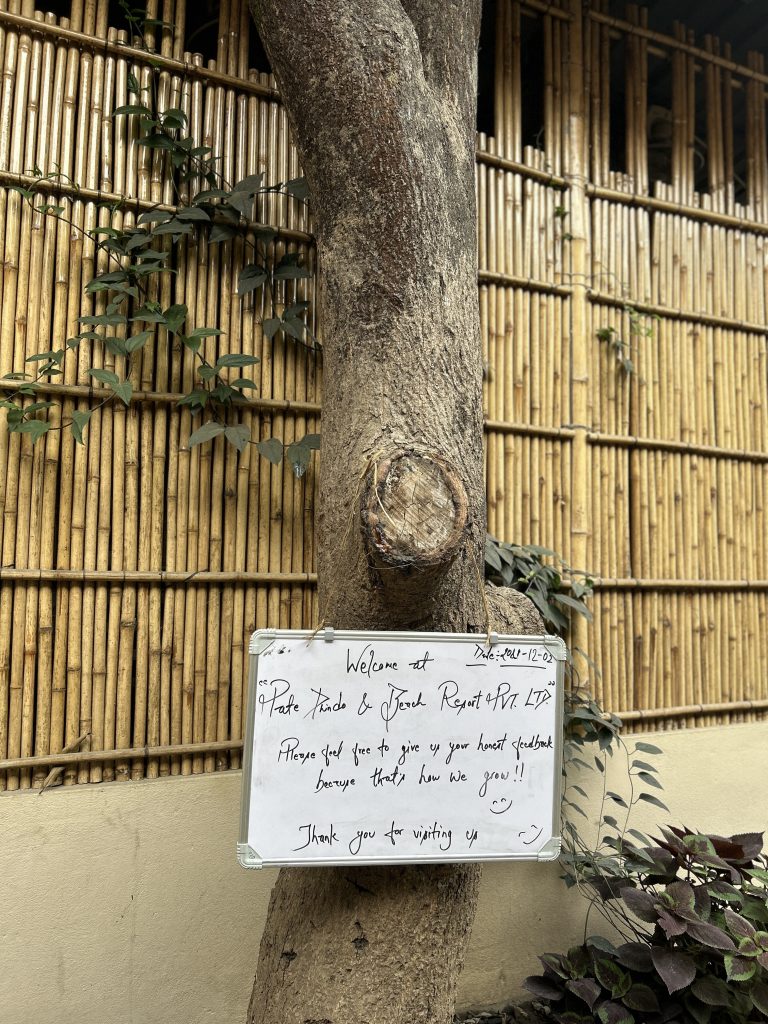 Welcome at
Date:-
& Beach Resort PVT. LTD."
Please feel free to give us your honest feedback
because that's how we grow!!
Thank you for visiting us